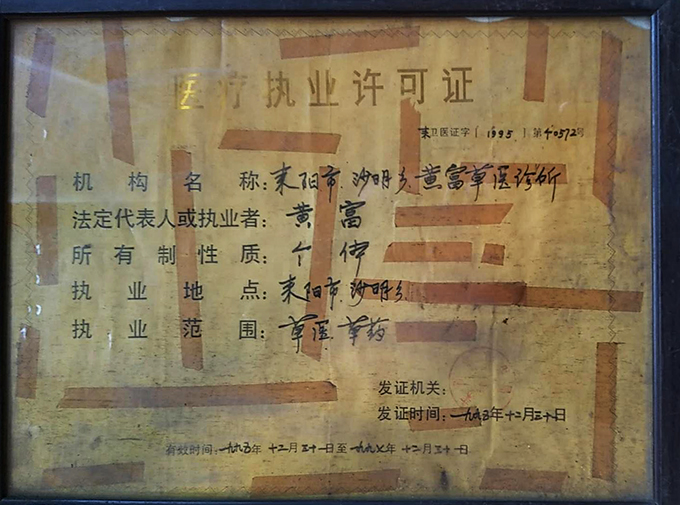 医疗执业许可证
耒卫医证字［1995］第40572号
机构名称：耒阳市沙明乡黄富草医诊所
法定代表人或执业者：黄富
所有制性质：个体
执业地点：耒阳市沙明乡
执业范围：草医草药
发证机关：
发证时间：一九九五年十二月三十日
有效时间：一九九五年十二月三十一日至一九九八年十二月三十一日